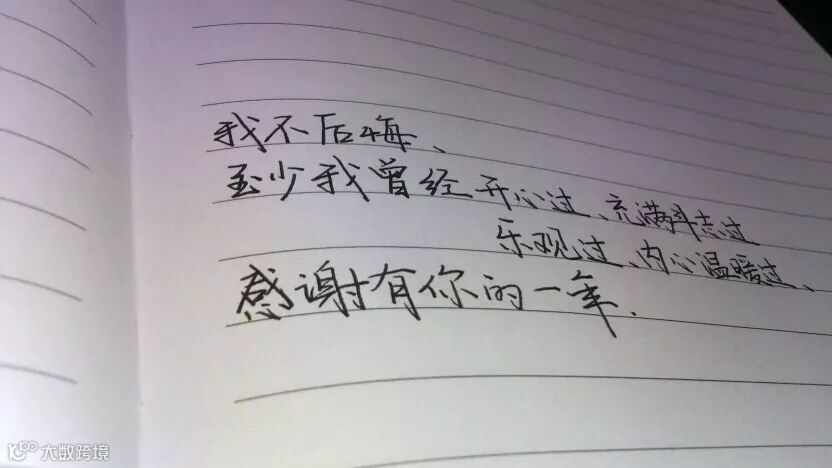 我不后悔、
至少我曾经开心过、充满斗志过
乐观过、内心温暖过、
感谢有你的一年.
大数跨境